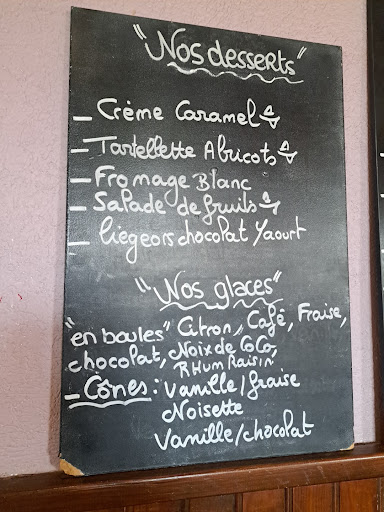 "Nos desserts"
- Crème Caramel
- Tartellette Abricots
- Fromage Blanc
- Salade de fruits
- liégeois chocolat Yaourt
"Nos glaces"
"en boules" Citron, Café, Fraise,
chocolat, Noix de CoCo,
RHum Raisin
- Cônes : Vanille/fraise
Noisette
Vanille/chocolat